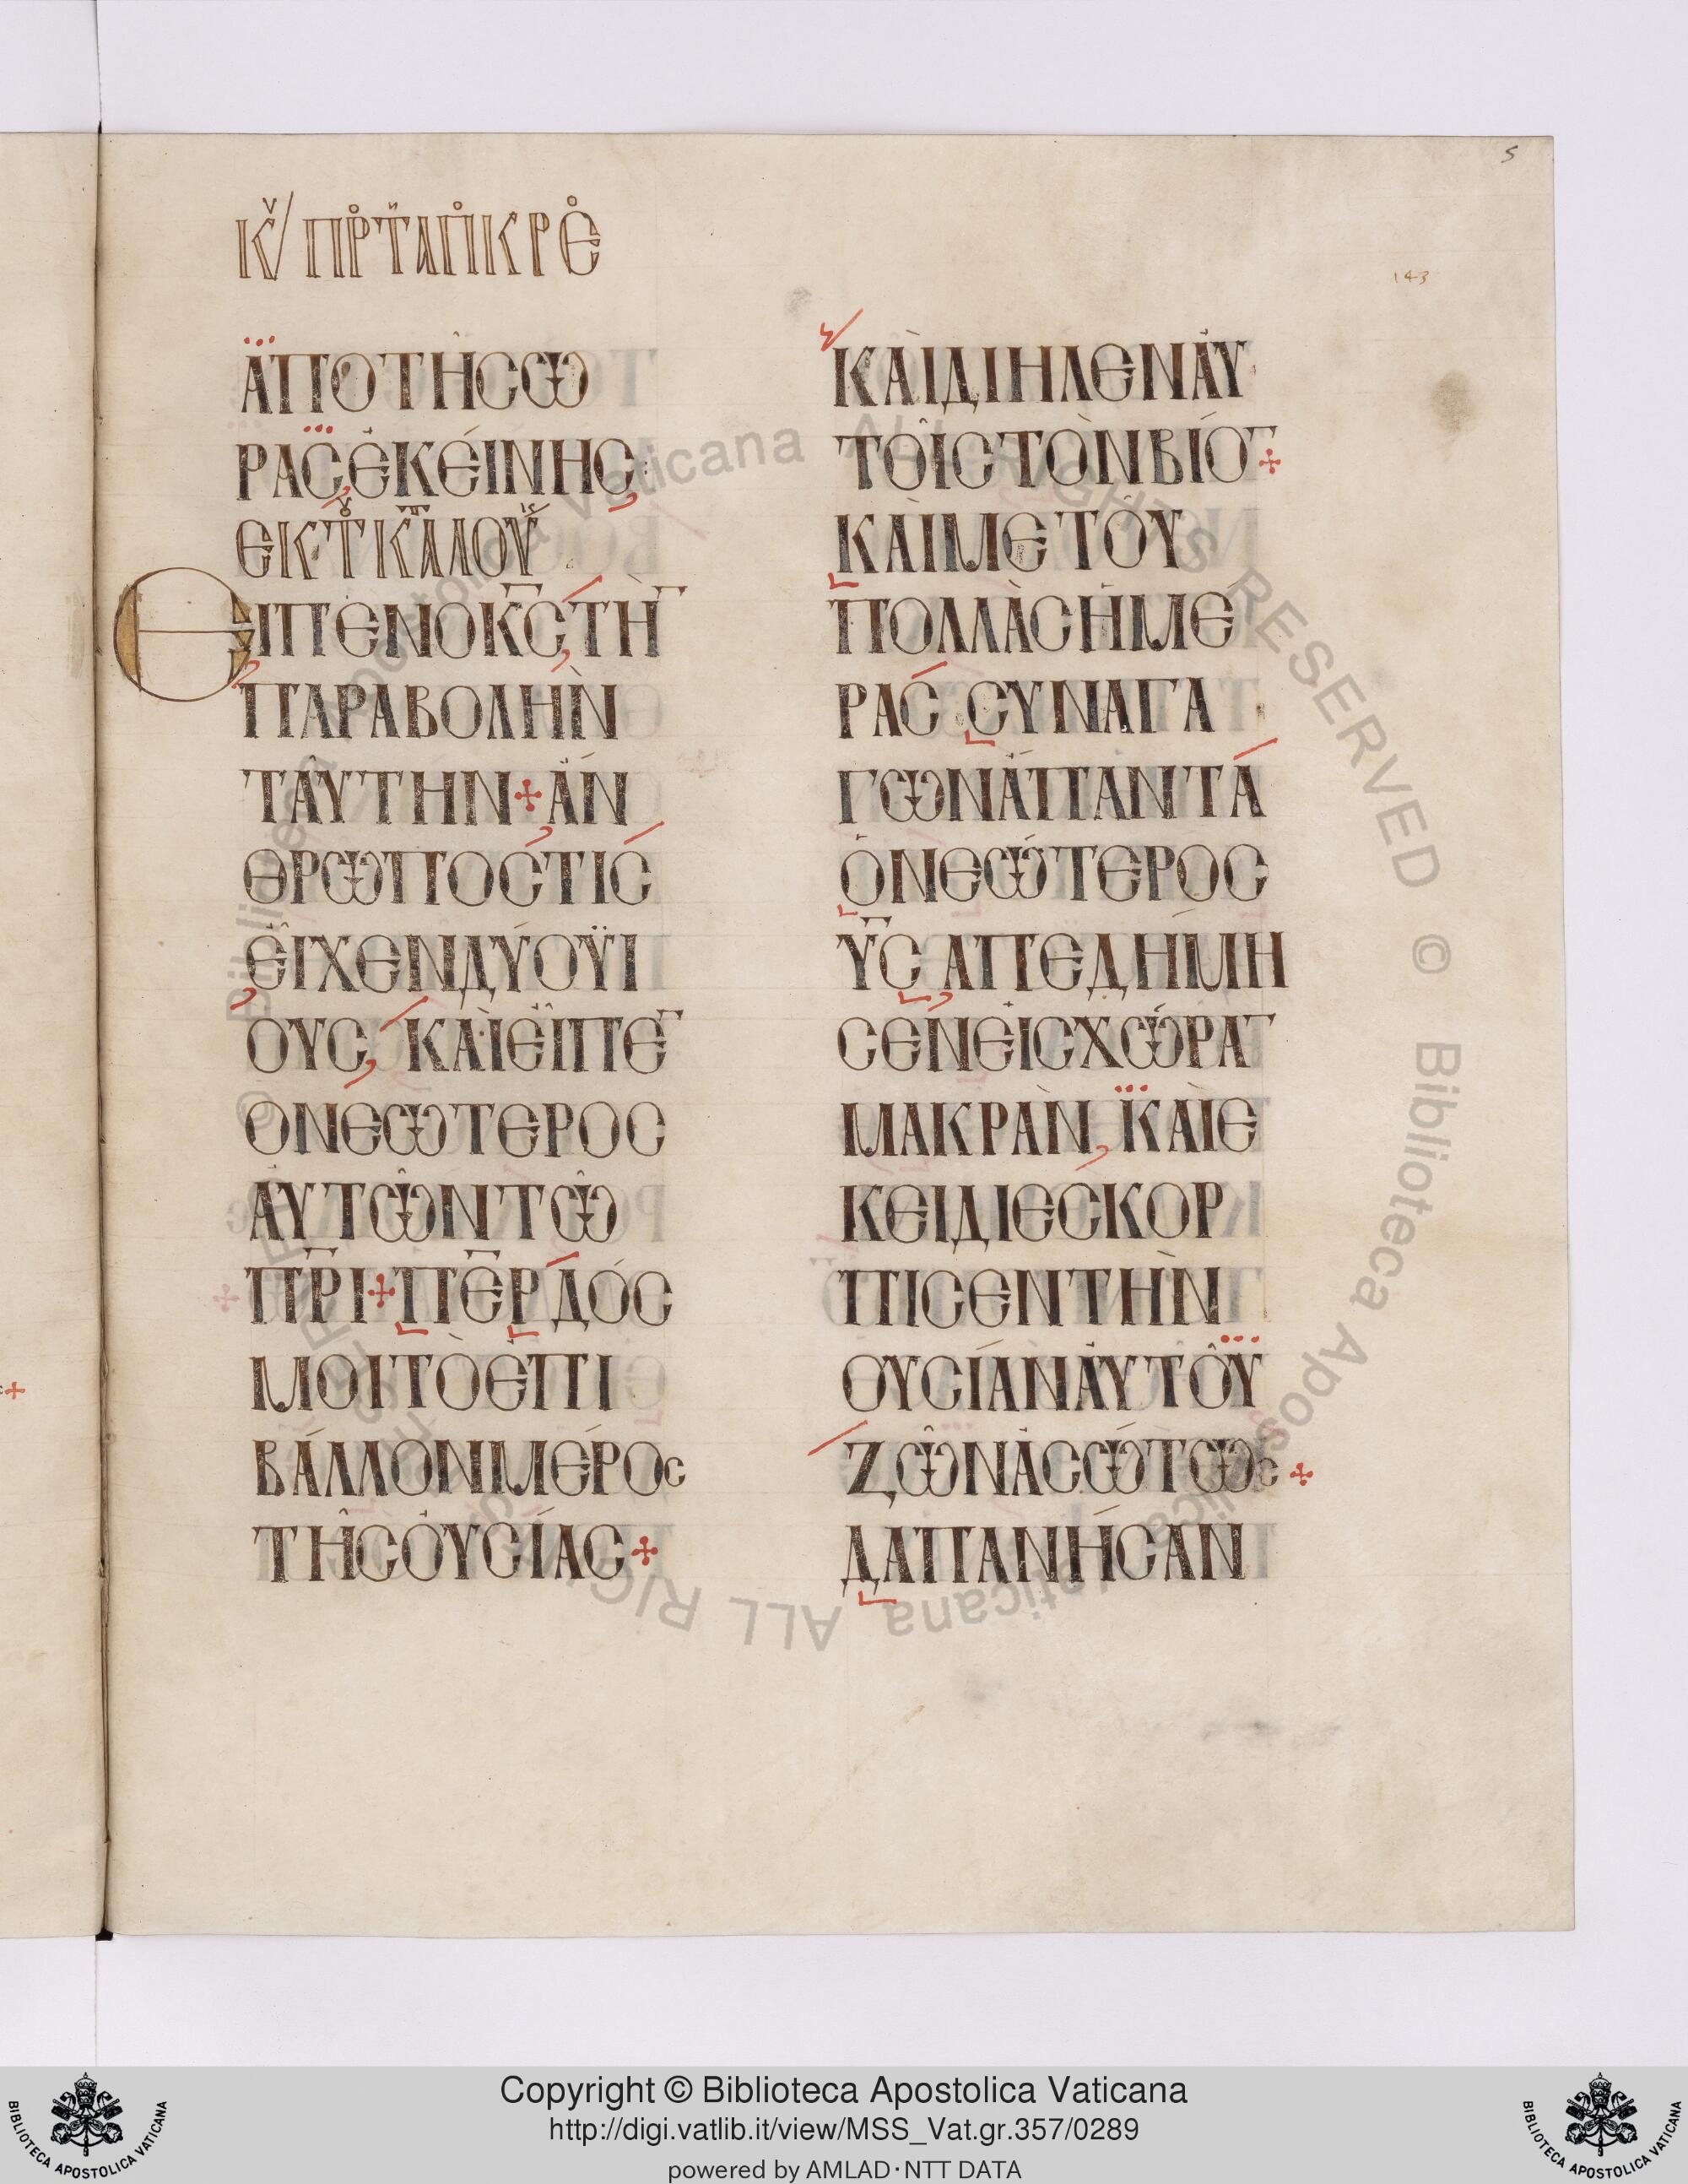 5
Κ͞Υ ΠΡ ΤΑΠΟΚΡΕ
143
ΑΠΟΤΗ͂CѠ
ΡΑC ἘΚΕΊΝΗC
ΕΚ Τ ΚΑΤΑ ΛΟΥΚ
ΕΙΠΕΝ Ο Κ͞C ΤῊ
ΠΑΡΑΒΟΛῊΝ
ΤΑΎΤΗΝ + ἌΝ
ΘΡѠΠΟC ΤΙC
ΕἾΧΕΝ ΔΎΟ ΫΙ
ΟΥC, ΚΑῚ ΕἾΠΕ
Ο ΝΕѠΤΕΡΟC
ΑΥΤѠ͂Ν ΤѠ͂
Π͞ΡΙ + Π͞ΕΡ ΔΌC
ΜΟΙ ΤῸ ἘΠΙ
ΒΆΛΛΟΝ ΜΈΡΟC
ΤΗ͂C ΟΥCΊΑC +
ΚΑῚ ΔΙΗΛΕΝ ΑΥ
ΤΟΙ͂C ΤῸΝ ΒΊΟ +
ΚΑῚ ΜΕΤ ΟΥ
ΠΟΛΛᾺC ἩΜΈ
ΡΑC CΥΝΑΓΑ
ΓѠΝ ἍΠΑΝΤΑ
Ὁ ΝΕѠ́ΤΕΡΟC
Υ͞C ΑΠΕΔΉΜΗ
CΕΝ ΕΙC ΧѠ́ΡΑ
ΜΑΚΡᾺΝ, ΚΑῚ Ε
ΚΕΙ ΔΙΕCΚΟΡ
ΠΙCΕΝ ΤῊΝ
ΟΥCΊΑΝ ΑΥΤΟΥ͂
ΖѠ͂Ν ἈCѠ́ΤѠC +
ΔΑΠΑΝΉCΑΝ
© Biblioteca Apostolica Vaticana ALL RIGHTS RESERVED
Copyright © Biblioteca Apostolica Vaticana
http://digi.vatlib.it/view/MSS_Vat.gr.357/0289
powered by AMLAD·NTT DATA
BIBLIOTECA APOSTOLICA VATICANA
BIBLIOTECA APOSTOLICA VATICANA